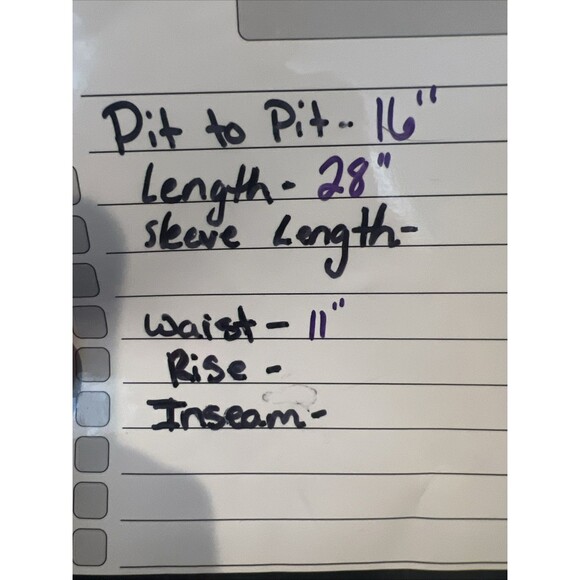 Pit to Pit- 16"
Length- 28"
Sleeve Length-
Waist- 11"
Rise -
Inseam-